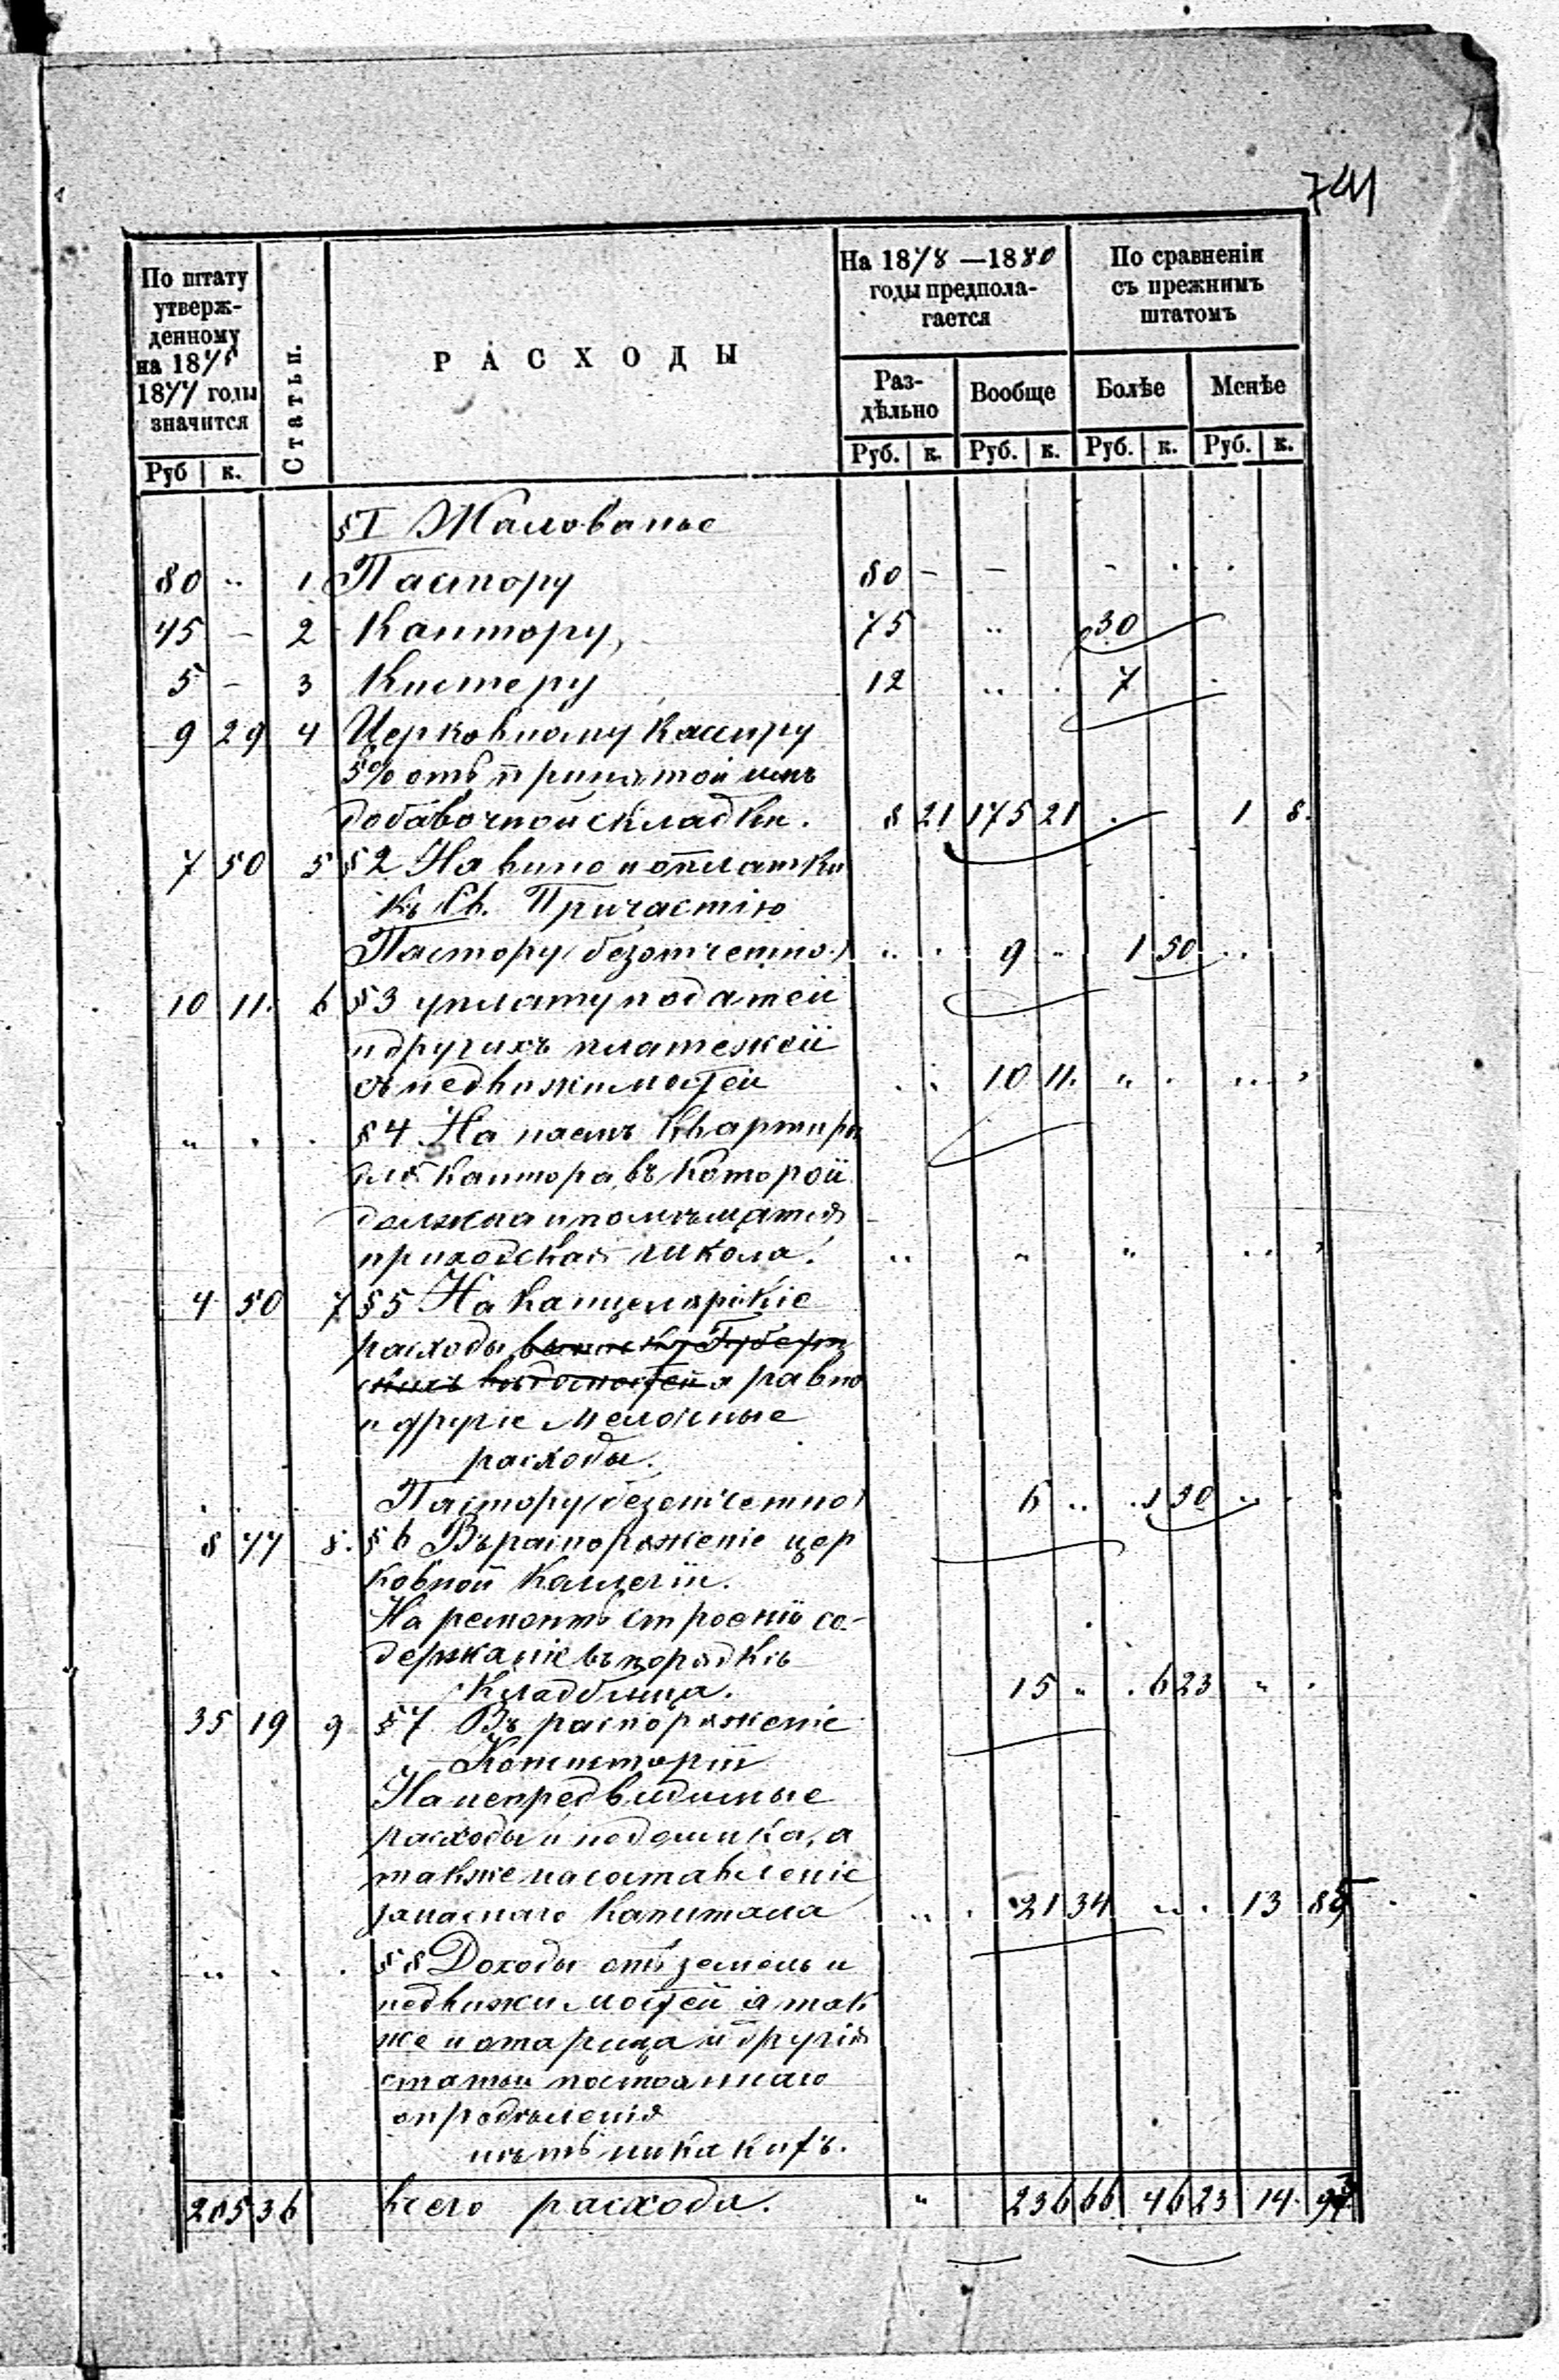 741
По штату утверж-денному на 1875 1877 годы значится | Статьи. | РАСХОДЫ | На 1878 —1880 годы предпола-гается | По сравненiи съ прежнимъ штатомъ
Раз-дѣльно | Вообще | Болѣе | Менѣе
Руб | к. | Руб. | к. | Руб. | к. | Руб. | к. | Руб. | к.
§ I Жалованье
80 " 1 Пастору 80 – – -
45 – 2 Кантору, 75 " 30
5 – 3 Кистеру 12 " 7
9 29 4 Церковному Кассиру
5% отъ принятой имъ
добавочной складки. 8 21 175 21 1 8.
7 50 5 § 2 На вино и оплатки
къ Св. Причастiю
Пастору (безотчетно) " 9 " 1 50 "
10 11. 6 § 3 уплату податей
и другихъ платежей
съ недвижимостей 10 11. " "
" § 4 На наемъ квартиры
для кантора, въ которой
должна и помѣщатся
приходская школа. " " " "
4 50 7 § 5 На канцелярскiе
расходы выписку Губерн
скихъ вѣдомостей а равно
и другiе мелочные
расходы.
Пастору (безотчетно) 6 " 1 50 "
8 77 8. § 6 Въ распоряженiе цер
ковной Коллегiи.
На ремонтъ строенiй со-
держанiе въ порядкѣ
Кладбища. 15 " 6 23 "
35 19 9 § 7 Въ распоряженiе
Консисторiи
На непредвидимые
расходы и недоимка, а
также на составленiе
запаснаго капитала " 21 34 " 13 85
" § 8 Доходы отъ земель и
недвижимостей а так
же и отарица и другiя
статьи постояннаго
опредѣленiя
нѣтъ никакихъ.
205 36 Всего расхода. " 236 66 46 23 14 93